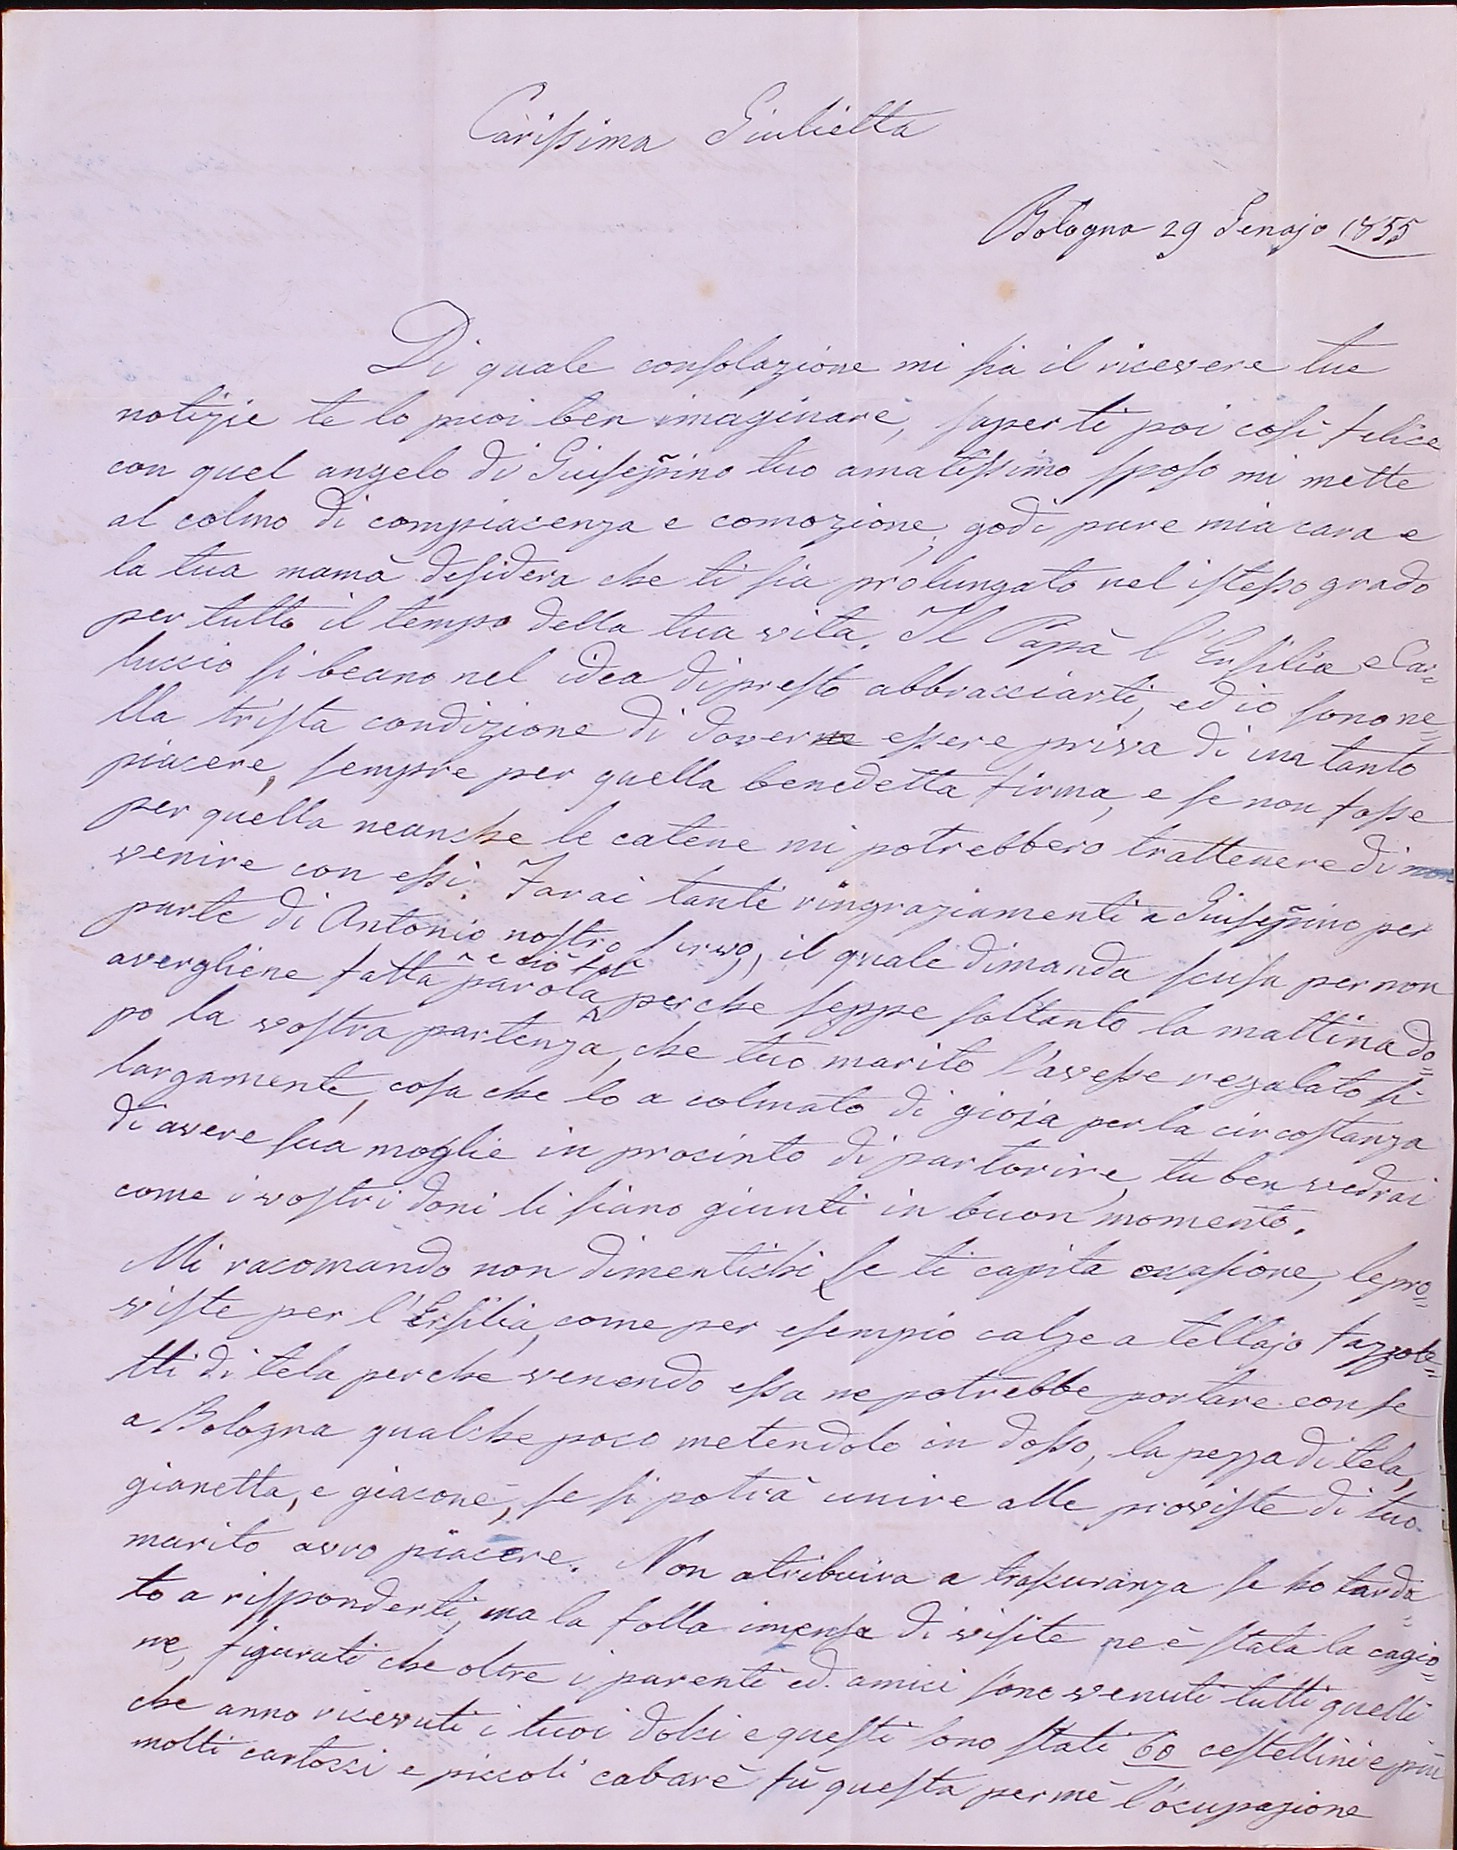 Carissima Giulietta
Bologna 29 Genajo 1855
Di quale consolazione mi sia il ricevere tue
notizie te lo puoi ben imaginare, saperti poi così felice
con quel angelo di Giusepino tuo amatissimo sposo mi mette
al colmo di compiacenza e comozione, godi pure mia cara e
la tua mamà desidera che ti sia prolungato nel istesso grado
per tutto il tempo della tua vita. Il Papà l'Ersilia e Car=
luccio si beano nel idea di presto abbracciarti, ed io sono ne=
lla trista condizione di dover essere priva di un tanto
piacere, sempre per quella benedetta firma, e se non fosse
per quella neanche le catene mi potrebbero trattenere di non
venire con essi. Farai tanti ringraziamenti a Giusepino per
parte di Antonio nostro servo, il quale dimanda scusa per non
avergliene fatta parola, e ciò fù perche seppe soltanto la mattina do=
po la vostra partenza, che tuo marito l'avesse regalato sì
largamente, cosa che lo a colmato di gioja per la circostanza
di avere sua moglie in procinto di partorire, tu ben vedrai
come i vostri doni li siano giunti in buon momento.
Mi racomando non dimentichi se ti capita occasione, le pro=
viste per l'Ersilia, come per esempio calze a tellajo fazzole=
tti di tela perche venendo essa ne potrebbe portare con se
a Bologna qualche poco metendolo in dosso, la pezza di tela,
gianetta, e giaconè, se si potrà unire alle proviste di tuo
marito avro piacere. Non atribuira a trascuranza se ho tarda
to a risponderti, ma la folla imensa di visite ne è stata la cagio=
ne, figurati che oltre i parenti ed amici sono venuti tutti quelli
che anno ricevuti i tuoi dolci e questi sono stati 60 cestellini e più
molti cartocci e piccoli cabarè fù questa per me l'ocupazione